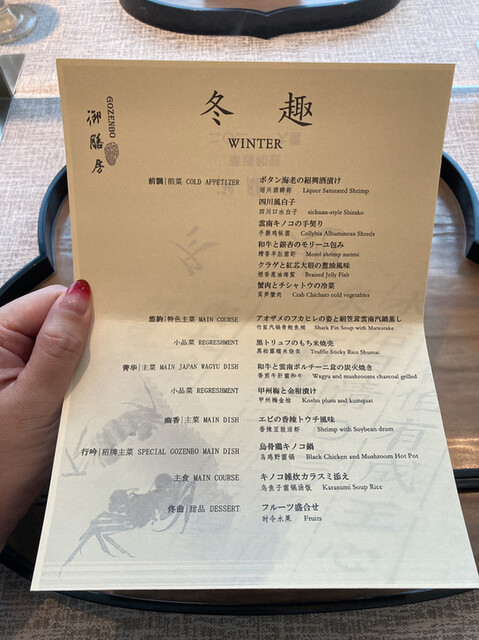 GOZENBO
御膳房
冬 趣
WINTER
前調|前菜 COLD APPETIZER
ボタン海老の紹興酒漬け
绍兴酒醉虾 Liquor Saturated Shrimp
四川風白子
四川口水白子 sichuan-style Shirako
雲南キノコの手契り
手撕鸡枞菌 Collybia Albuminosa Shreds
和牛と銀杏のモリーユ包み
糟香羊肚菌虾 Morel shrimp surimi
クラゲと紅芯大根の葱油風味
橙香葱油海蜇 Braised Jelly Fish
蟹肉とチシャトウの冷菜
莴笋蟹肉 Crab Chichato cold vegetables
悠鈞|特色主菜 MAIN COURSE
アオザメのフカヒレの姿と絹笠茸雲南汽鍋蒸し
竹笙汽锅青鲛鱼翅 Shark Fin Soup with Matsutake
小品菜 REGRESHMENT
黒トリュフのもち米焼売
黑松露糯米烧卖 Truffle Sticky Rice Shumai
菁华|主菜 MAIN JAPAN WAGYU DISH
和牛と雲南ポルチーニ茸の炭火焼き
香煎牛肝菌和牛 Wagyu and mushrooms charcoal grilled
小品菜 REGRESHMENT
甲州梅と金柑漬け
甲州梅金柚 Koshu plum and kumquat
幽香|主菜 MAIN DISH
エビの香辣トウチ風味
香辣豆豉活虾 Shrimp with Soybean drum
行吟|招牌主菜 SPECIAL GOZENBO MAIN DISH
烏骨鶏キノコ鍋
乌鸡野菌锅 Black Chicken and Mushroom Hot Pot
主食 MAIN COURSE
キノコ雑炊カラスミ添え
乌鱼子菌锅汤饭 Karasumi Soup Rice
佟曲|甜品 DESSERT
フルーツ盛合せ
时令水果 Fruits